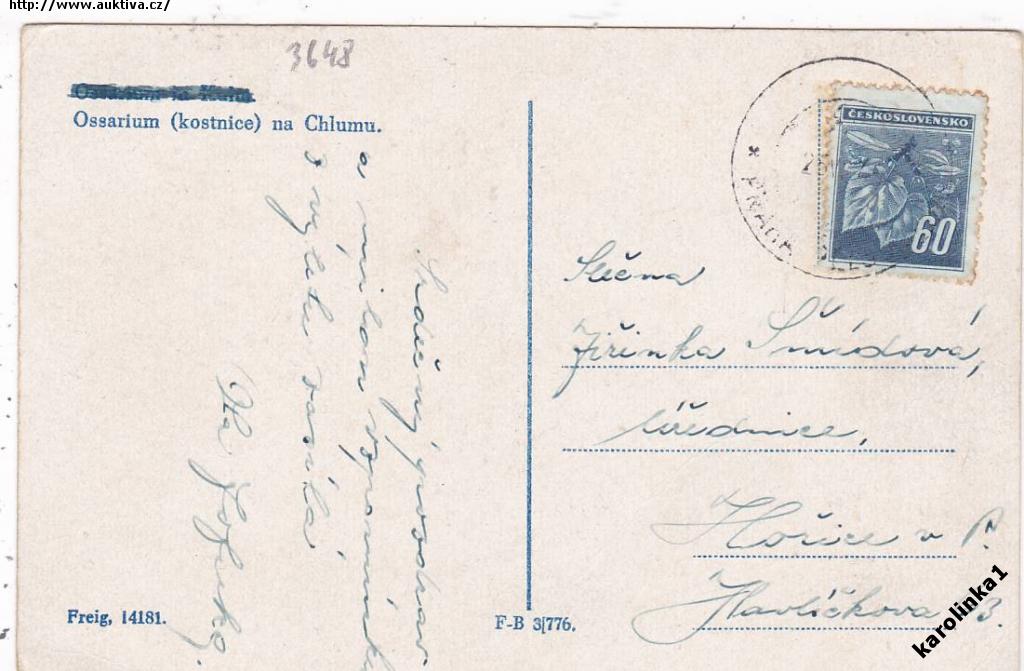 http://www.auktiva.cz/
3648
Ossarium (kostnice) na Chlumu.
Srdečný pozdrav
a milou vzpomínku
z výletu zasílá
ČESKOSLOVENSKO
60
PRAHA
Slečna
Jiřinka Šmídová,
úřednice,
Hořice v P.
Havlíčkova 3.
Freig, 14181.
F-B 3[776.
karolinka1